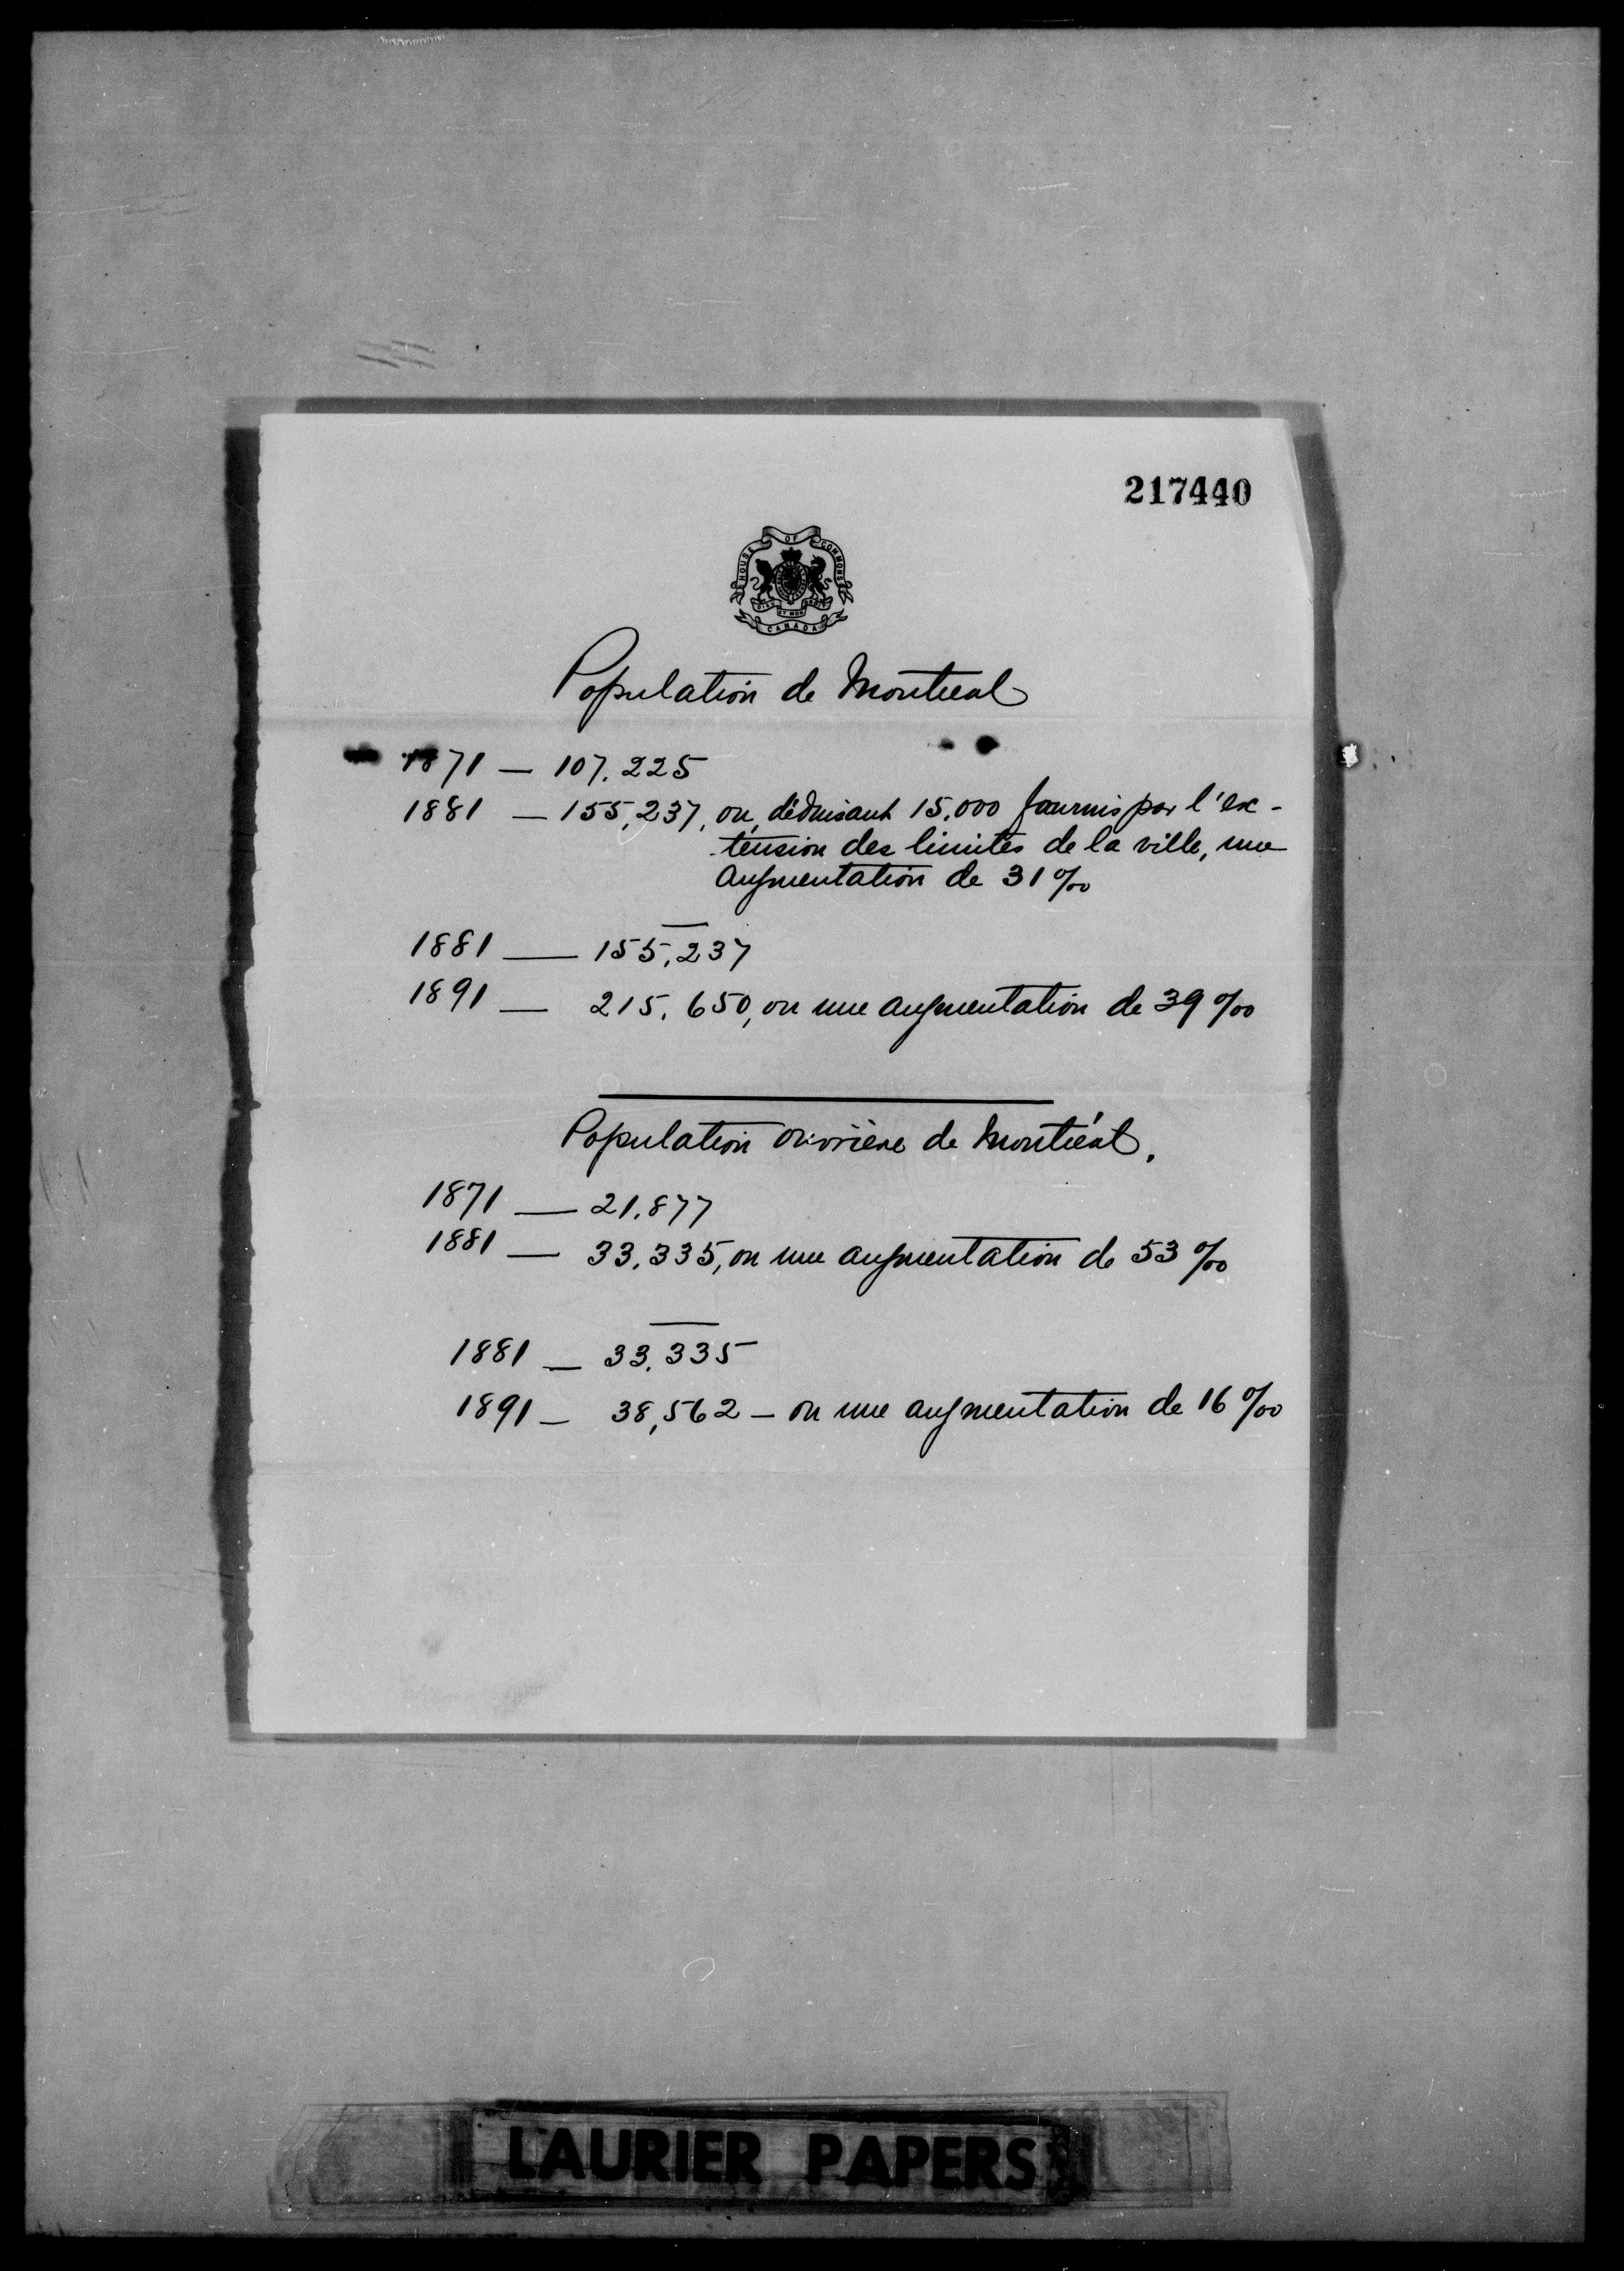 217440
HOUSE OF COMMONS
DIEU ET MON DROIT
CANADA
Population de Montreal
1871 — 107.225
1881 — 155,237, ou, déduisant 15.000 fournis par l'ex-
tension des limites de la ville, une
augmentation de 31 %
1881 — 155,237
1891 — 215.650, ou une augmentation de 39 %
Population ouvrière de Montréal.
1871 — 21.877
1881 — 33.335, ou une augmentation de 53 %
1881 — 33.335
1891 — 38,562 — ou une augmentation de 16 %
LAURIER PAPERS